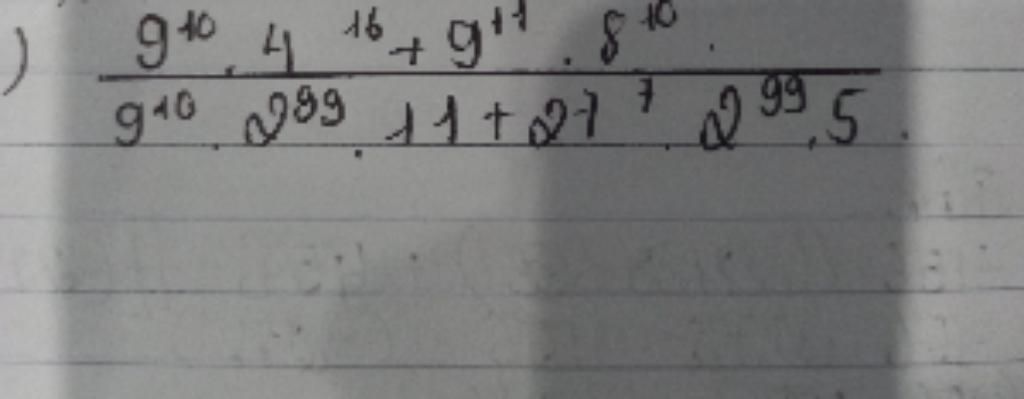 ) 9^10 . 4^16 + 9^11 . 8^10 .
9^10 . 2^99 . 11 + 27^7 . 2^99 . 5 .